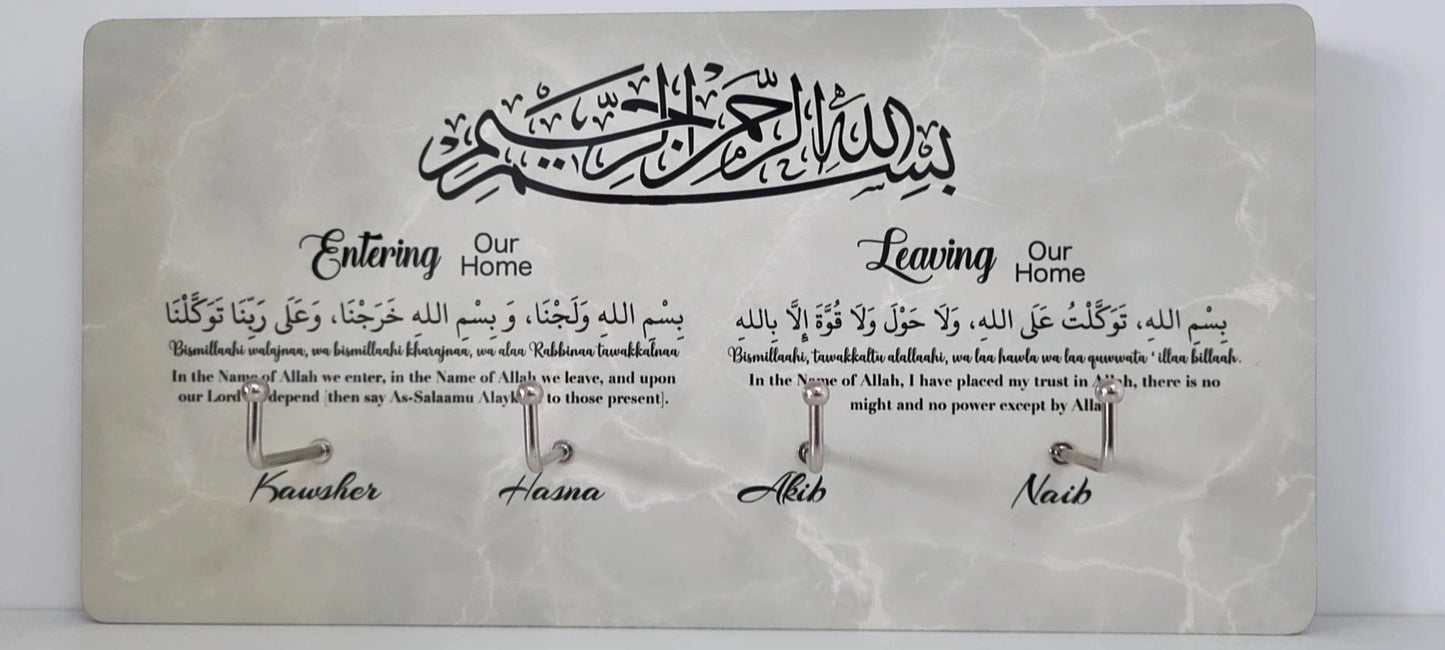 بسم الله الرحمن الرحيم
Entering Our Home
بِسْمِ اللهِ وَلَجْنَا، وَ بِسْمِ اللهِ خَرَجْنَا، وَعَلَى رَبِّنَا تَوَكَّلْنَا
Bismillaahi walajnaa, wa bismillaahi kharajnaa, wa alaa Rabbinaa tawakkalnaa
In the Name of Allah we enter, in the Name of Allah we leave, and upon
our Lord depend [then say As-Salaamu to those present].
Leaving Our Home
بِسْمِ اللهِ، تَوَكَّلْتُ عَلَى اللهِ، وَلَا حَوْلَ وَلَا قُوَّةَ إِلَّا بِاللهِ
Bismillaahi, tawakkaltu alallaahi, wa laa hawla wa laa quwwata ‘illaa billaah.
In the Name of Allah, I have placed my trust in Allah, there is no
might and no power except by Allah
Kawsher
Hasna
Akib
Naib